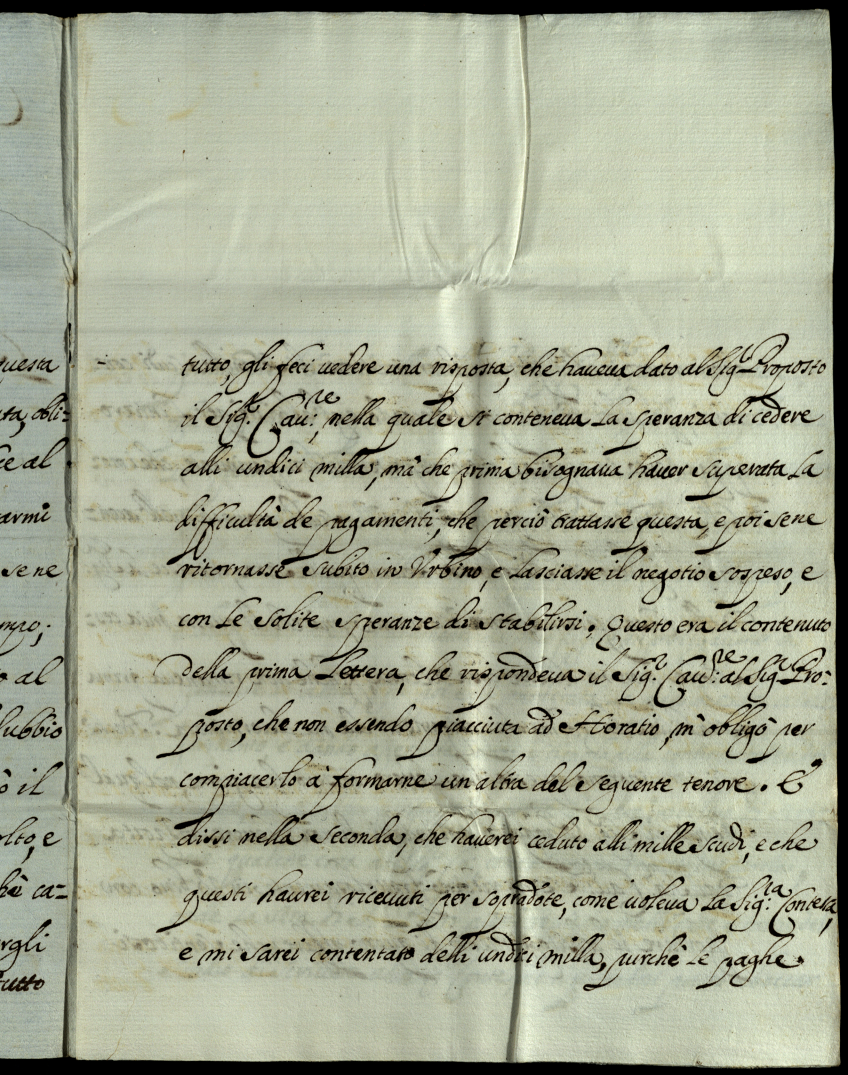 questa
ta, obli=
ce al
armi
se ne
mpo;
o al
dubbio
ò il
olto, e
hè ca=
rgli
tutto
tutto, gli feci vedere una risposta, che haveva dato al Sig.r Proposto
il Sig.r Cav:re, nella quale si conteneva la speranza di cedere
alli undici milla, mà che prima bisognava haver superata la
difficultà de pagamenti, che perciò trattasse questa, e poi sene
ritornasse subito in Urbino, e lasciasse il negotio sospeso, e
con le solite speranze di stabilirsi. Questo era il contenuto
della prima lettera, che rispondeva il Sig.r Cav:re al Sig.r Pro=
posto, che non essendo piacciuta ad Horatio, m'obligò per
compiacerlo à formarne un'altra del seguente tenore. E
dissi nella seconda, che haverei ceduto alli mille scudi, e che
questi haurei ricevuti per sopradote, come voleva la Sig:ra Contessa,
e mi sarei contentato delli undici milla, purchè le paghe